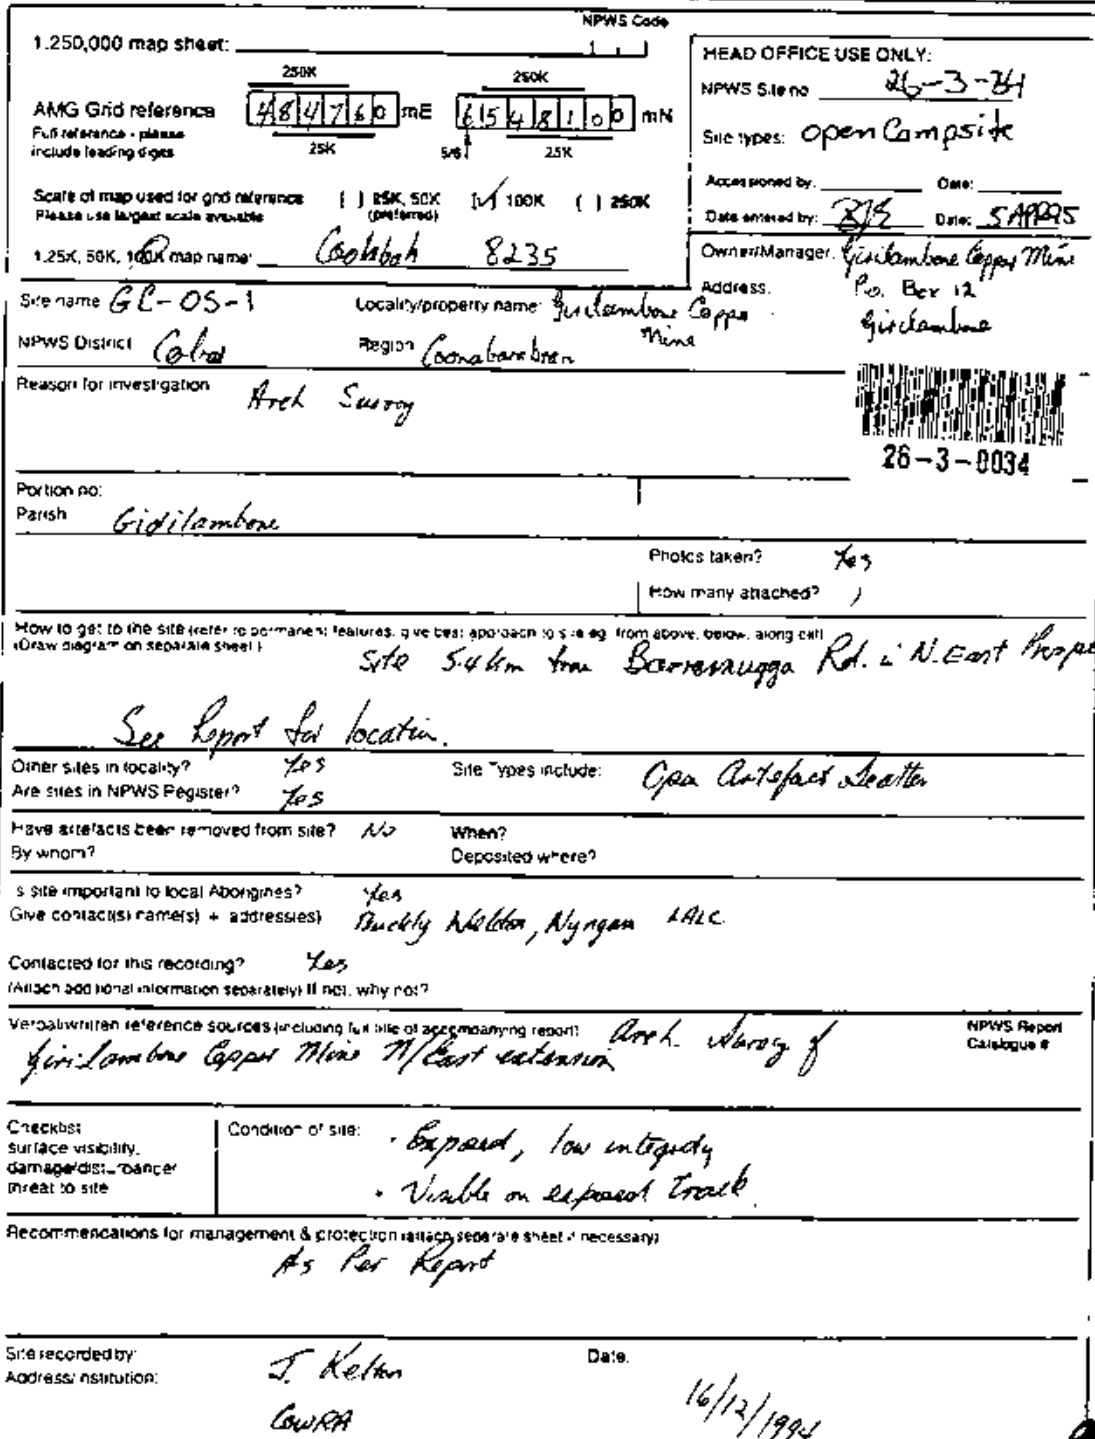 NPWS Code
1.250,000 map sheet:
250K 250K
AMG Grid reference 484760 mE 6548100 mN
Full reference - please
include leading digits
25K 5/6 25K
Scale of map used for grid reference [ ] 25K, 50K [✓] 100K ( ) 250K
Please use largest scale available (preferred)
1.25K, 50K, 100K map name: Coolabah 8235
HEAD OFFICE USE ONLY:
NPWS Site no 26-3-34
Site types: open Campsite
Accessioned by: Date:
Date entered by: Date: 5 APR 95
Owner/Manager: Girilambone Copper Mine
Address: P.o. Box 12
Girilambone
Site name GC-OS-1 Locality/property name: Girilambone Copper
Mine
NPWS District Cobar Region Coonabarabran
Reason for investigation
Arch Survey
26-3-0034
Portion no:
Parish Girilambone
Photos taken? Yes
How many attached?
How to get to the site (refer to permanent features, give best approach to site eg. from above, below, along cliff
(Draw diagram on separate sheet)
Site 5.4km from Rd. N. East Prope
See Report for location.
Other sites in locality? Yes Site Types include: Open Artefact Scatter
Are sites in NPWS Register? Yes
Have artefacts been removed from site? No When?
By whom? Deposited where?
Is site important to local Aborigines? Yes
Give contact(s) name(s) + address(es) Nyngan LALC
Contacted for this recording? Yes
(Attach additional information separately) If not, why not?
Verbal/written reference sources (including full title of accompanying report) Arch. Survey of
Girilambone Copper Mine N/East extension
NPWS Report
Catalogue #
Checklist:
surface visibility,
damage/disturbance/
threat to site
Condition of site: · Exposed, low integrity
· Visible on exposed Track.
Recommendations for management & protection (attach separate sheet if necessary)
As Per Report
Site recorded by: J. Kelton Date:
Address/institution:
COWRA 16/12/1994